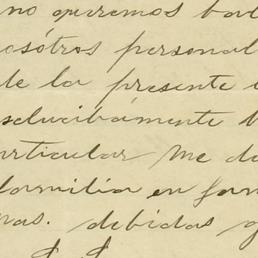 no queremos
nosótros personal
de la presente
esclucibámente
articular me da
familia en
mas. debidas